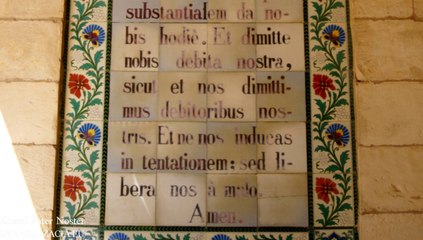 substantialem da no-
bis hodiè. Et dimitte
nobis debita nostra,
sicut et nos dimitti-
mus debitoribus nos-
tris. Et ne nos inducas
in tentationem: sed li-
bera nos à malo.
Amen.
Pater Noster